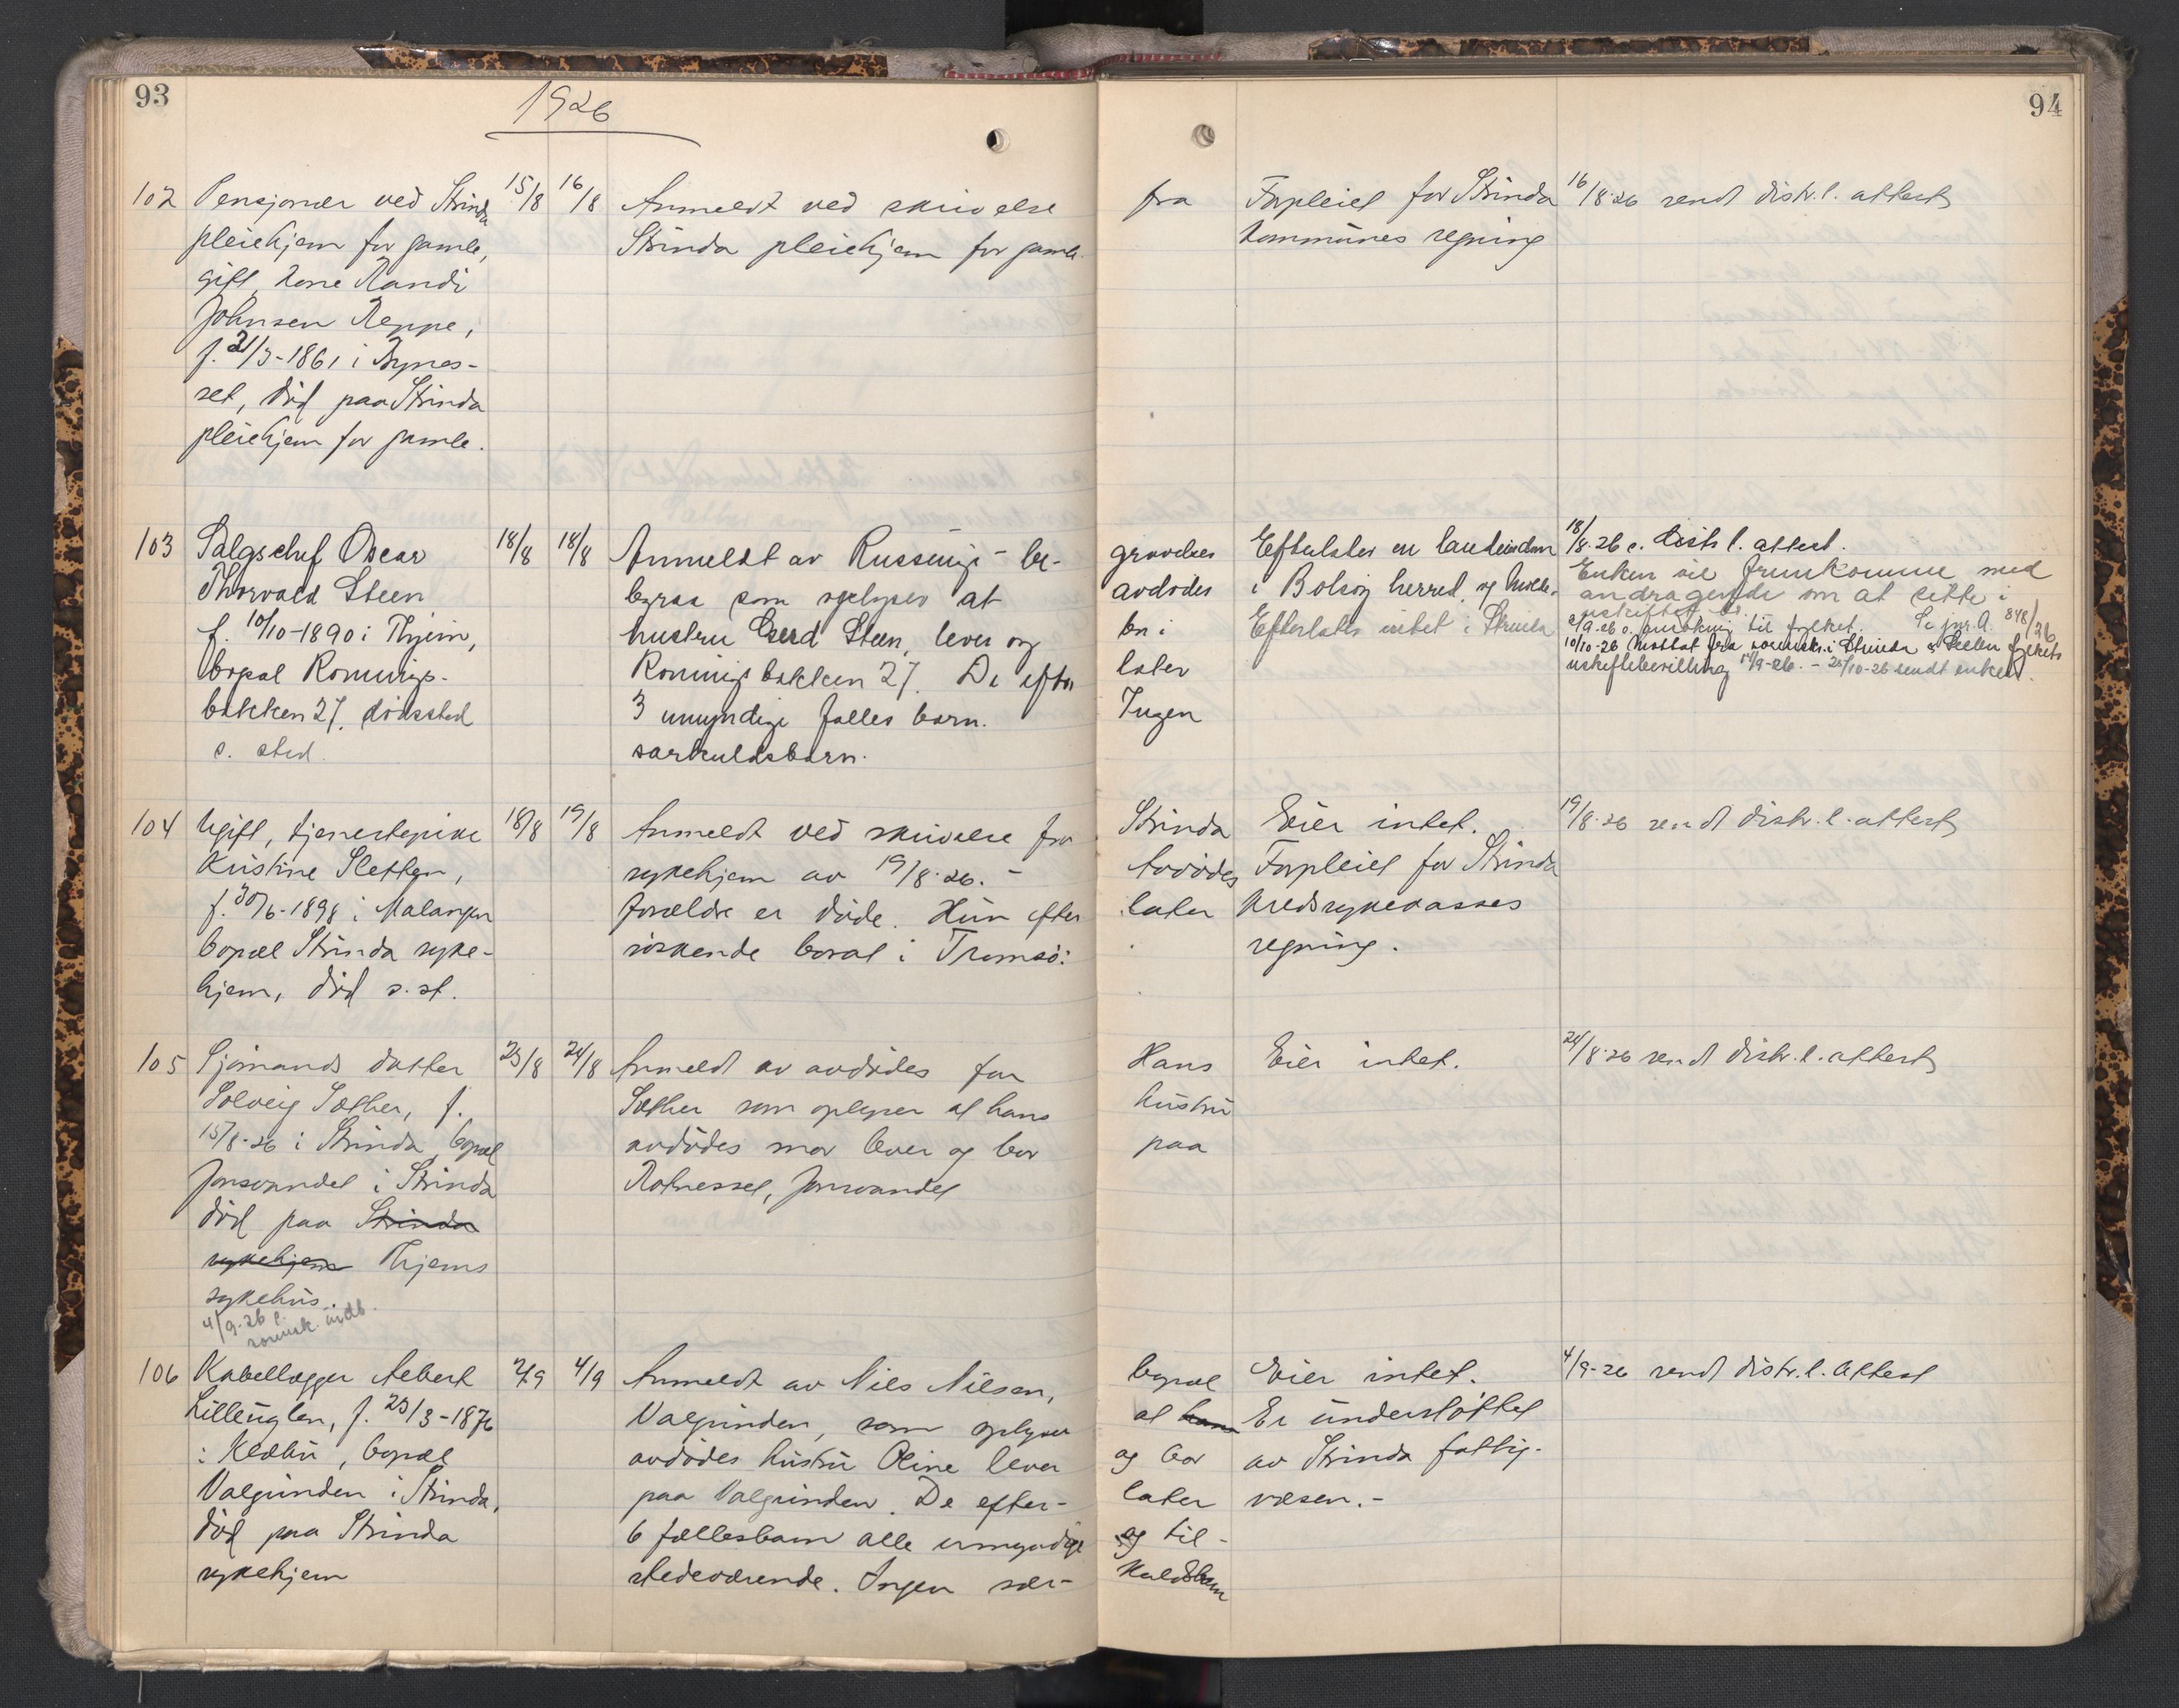 93
1926
94
102 Pensjonær ved Strinda 15/8 16/8 Anmeldt ved skrivelse fra Forpleiet for Strinda 16/8-26 sendt distr.l. attest
pleiehjem for gamle, Strinda pleiehjem for gamle. kommunes regning
gift, kone Randi
Johnsen Reppe,
f. 21/3-1861 i Bynes-
set, död paa Strinda
pleiehjem for gamle.
103 Salgschef Oscar 18/8 18/8 Anmeldt av begravelses Efterlater en landeiendom 18/8-26 s. distr l. attest.
Thorvald Steen byraa som oplyser at avdødes i Bolsøy herred, og Enken vil fremkomme med
f. 10/10-1890 i Thjem, hustru Gerd Steen, lever og bor i Efterlater intet i Strinda andragende om at sitte i
bopæl Ronnings- Ronnings bakken 27. De efterlater uskiftet bo.
bakken 27, dödssted 3 umyndige fælles barn. Ingen 2/9-26 s. til fylket. Se jnr. A. 848/26
s. sted. særkuldsbarn. 10/10-26 Mottat fra lensmann i Strinda fylkets
uskiftebevilling 17/9-26. - 25/10-26 sendt enken.
104 Ugift, tjenestepike 18/8 19/8 Anmeldt ved skrivelse fra Strinda Eier intet. 19/8-26 sendt distr.l. attest
Kristine Sletten, sykehjem av 19/8-26. - Avdødes Forpleiet for Strinda
f. 30/6-1898 i Malangen forældre er döde. Hun efter later kredssykekasses
bopæl Strinda syke- söskende bosat i Tromsö: regning.
hjem, död s. st.
105 Sjömands datter 23/8 24/8 Anmeldt av avdödes far Hans Eier intet. 24/8-26 sendt distr.l. attest
Solveig Sæther, f. Sæther som oplyser at hans hustru
15/8-26 i Strinda, bopæl avdödes mor lever og bor paa
Jonsvandet i Strinda Rotnesset, Jonsvandet
död paa Strinda
sykehjem Thjems
sykehus.
4/9-26 s.
106 Kabellægger Albert 2/9 4/9 Anmeldt av Nils Nilsen, bopæl Eier intet. 4/9-26 sendt distr.l. Attest
Lilleuglen, f. 23/3-1876 Valgrinden, som oplyser at hans Er understöttet
i Klæbu, bopæl avdödes hustru Oline lever og bor av Strinda fattig-
Valgrinden i Strinda, paa Valgrinden. De efter- later væsen.-
död paa Strinda 6 fællesbarn alle umyndige og til-
sykehjem stedeværende. Ingen sær- kuldsbarn